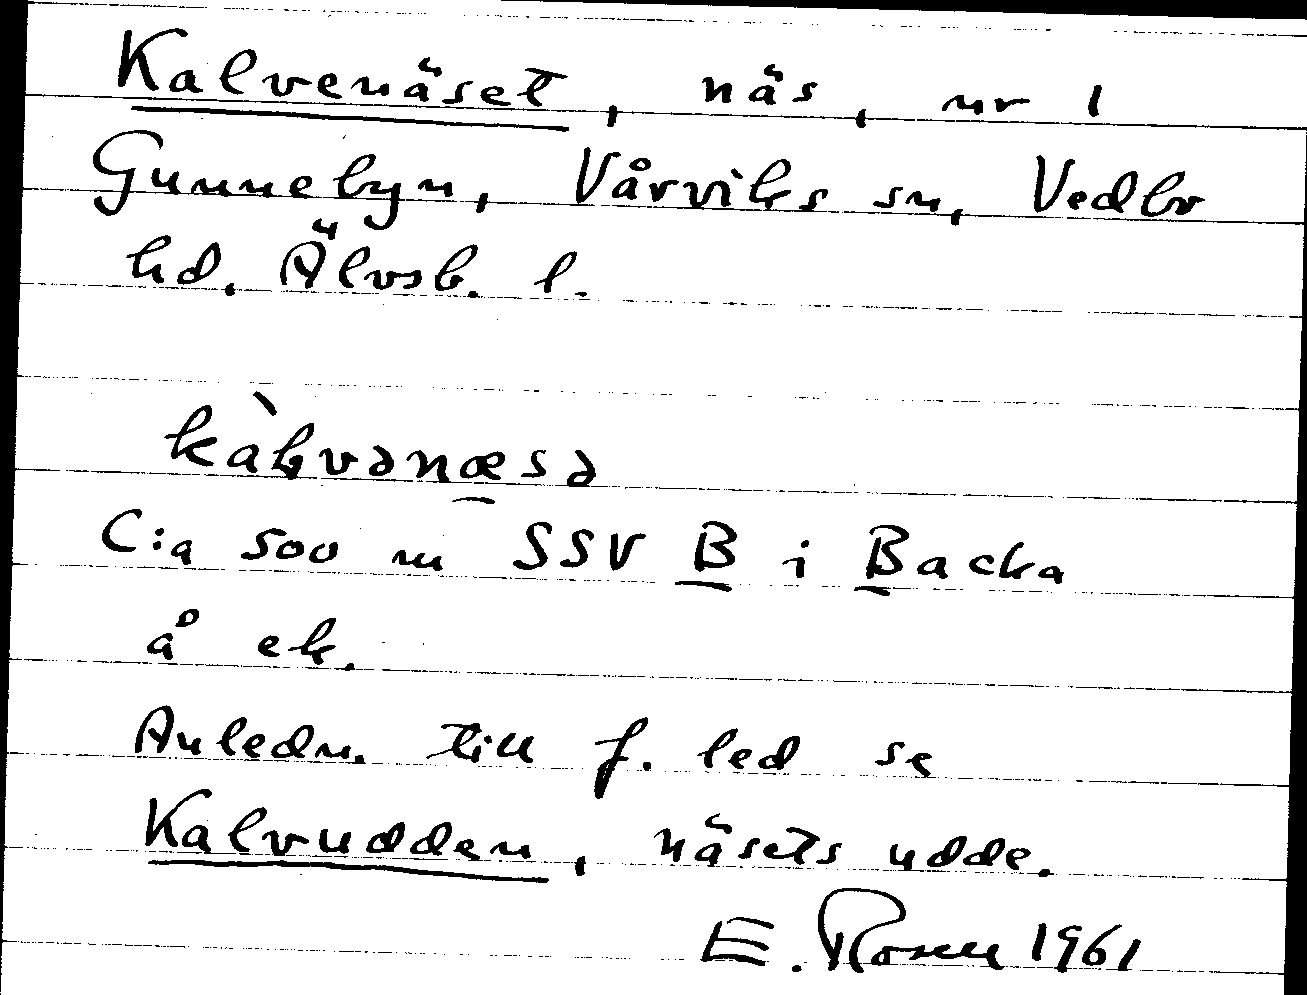 Kalvenäset, näs, nr 1
Gunnebyn, Vårviks sn, Vedbo
hd. Älvsb. l.
kàƚvənæsə
C:a 500 m SSV B i Backa
å ek.
Anledn. till f. led se
Kalvudden, näsets udde.
E. Rosen 1961